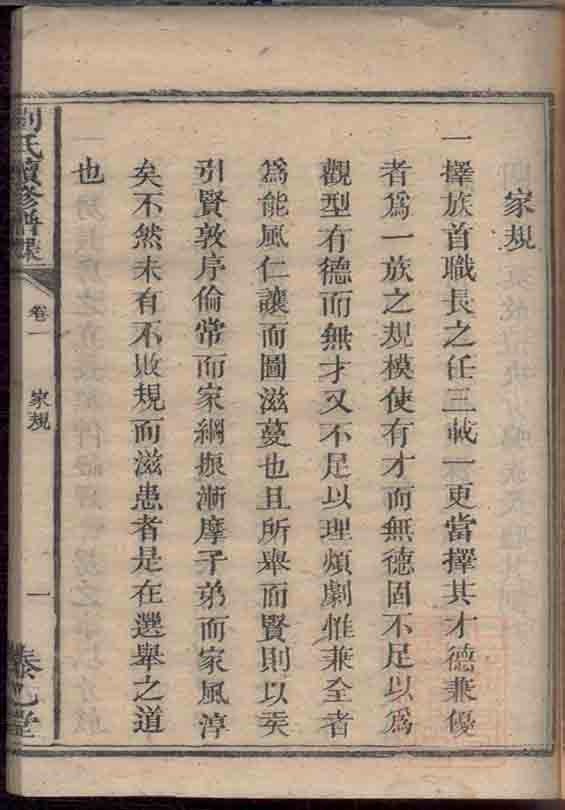 家規
一擇族首職長之任三載一更當擇其才德兼優
者爲一族之規模使有才而無德固不足以爲
觀型有德而無才又不足以理煩劇惟兼全者
爲能風仁讓而圖滋蔓也且所舉而賢則以賢
引賢敦序倫常而家綱振漸摩子弟而家風淳
矣不然未有不敗規而滋患者是在選舉之道
也
劉氏續修譜
卷一
家規
一
堂